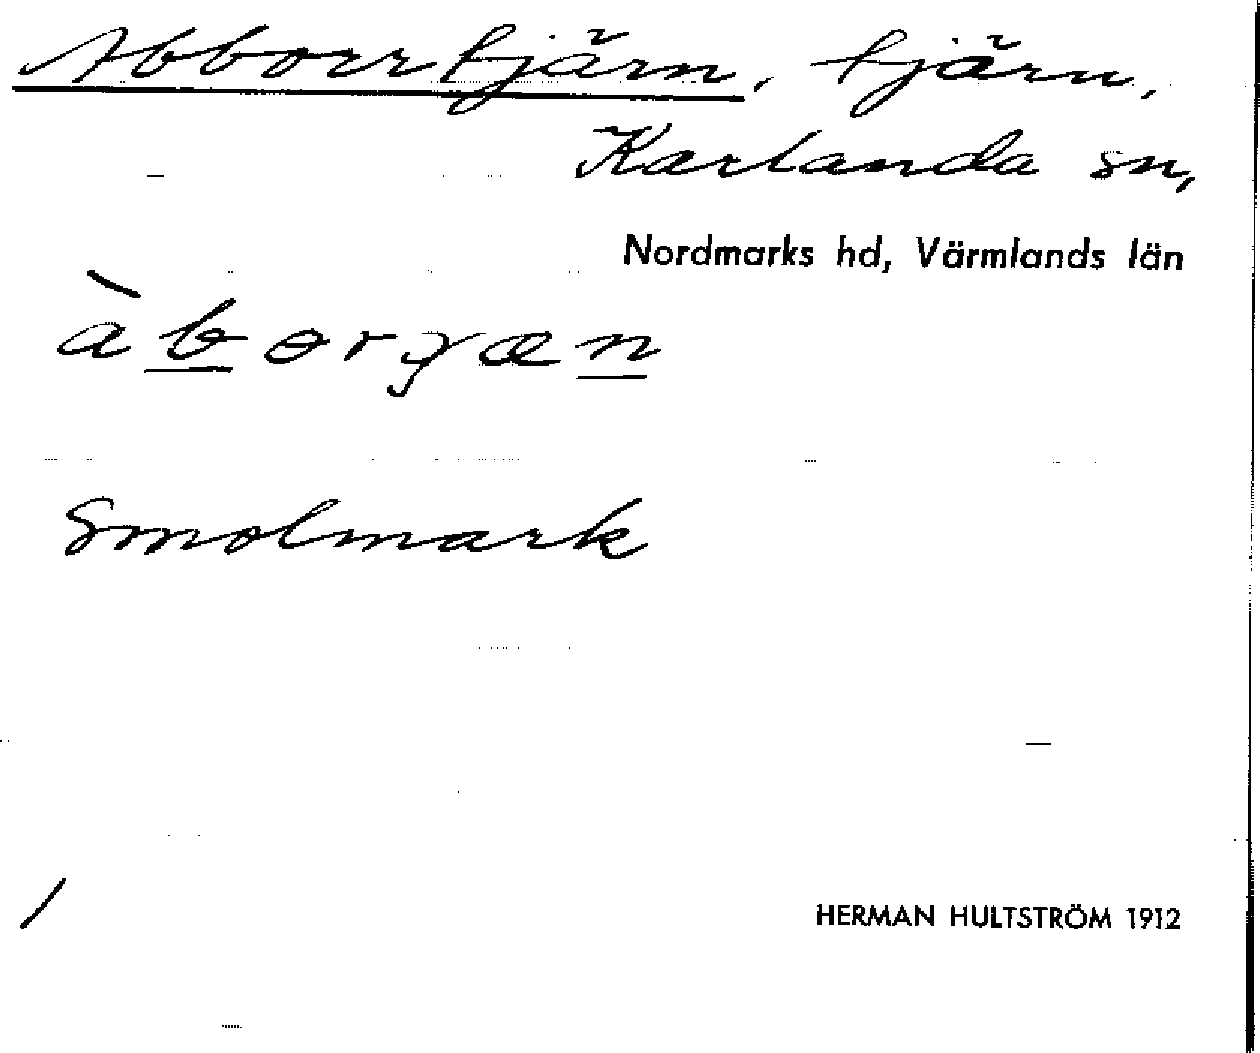 Abborrtjärn, tjärn,
Karlanda sn,
Nordmarks hd, Värmlands län
Smolmark
HERMAN HULTSTRÖM 1912